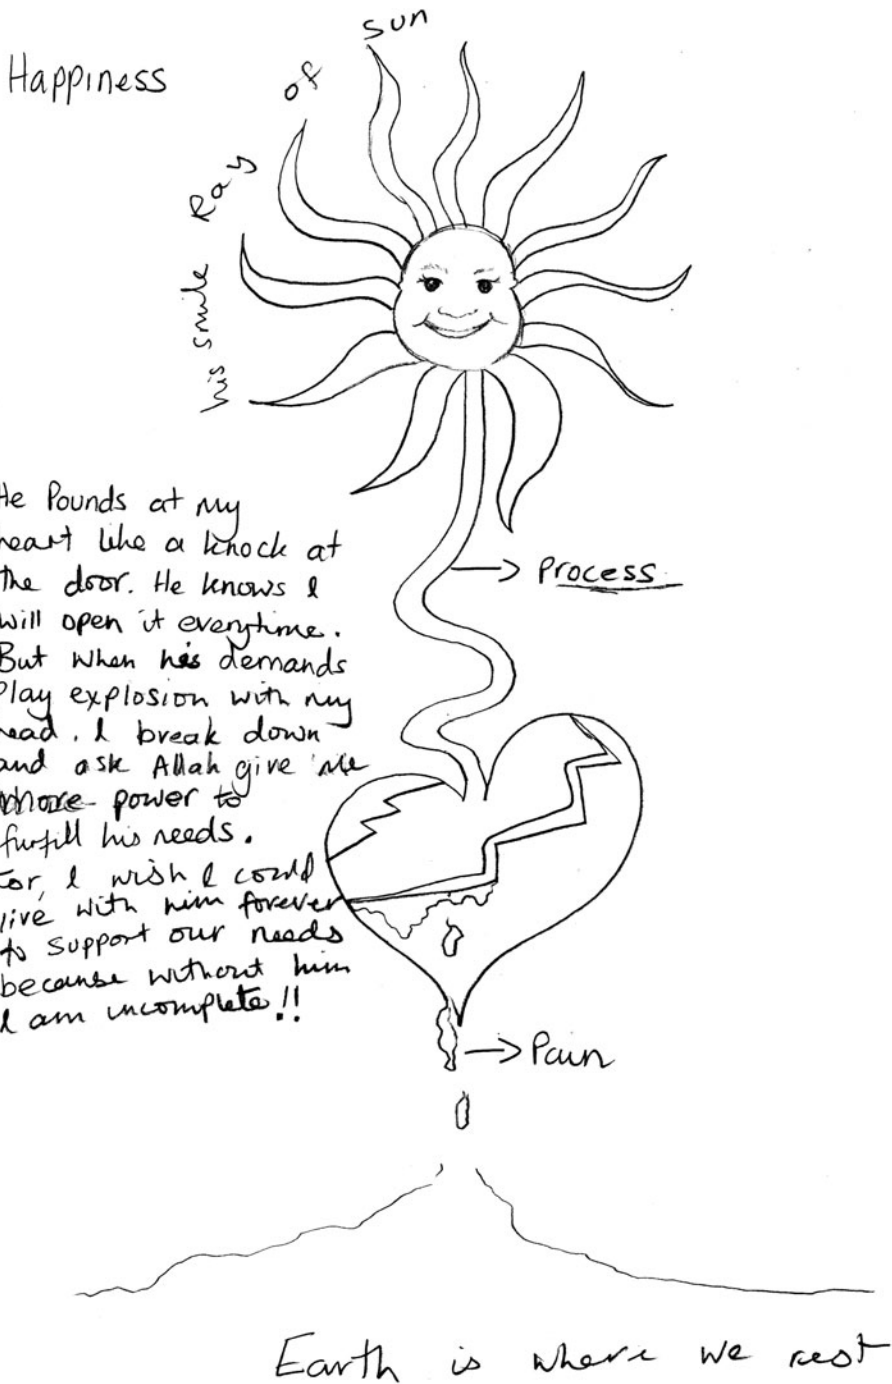 Happiness
his smile Ray of sun
He Pounds at my
heart like a knock at
the door. He knows I
will open it everytime.
But when his demands
Play explosion with my
head. I break down
and ask Allah give me
more power to
furfill his needs.
For, I wish I could
live with him forever
to support our needs
because without him
I am incomplete!!
→ Process
→ Pain
Earth is where we rest